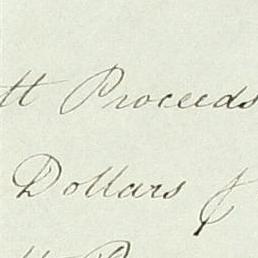 tt Proceeds
Dollars &